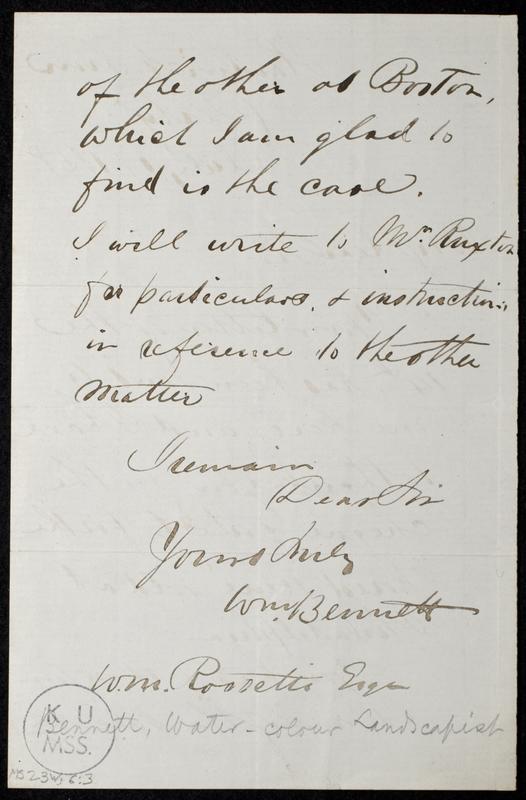 of the other at Boston,
which I am glad to
find is the case.
I will write to Mr. Ruxton
for particulars, & instructions
in reference to the other
matter
I remain
Dear Sir
Yours truly
Wm. Bennett
W.M. Rossetti Esqre
Bennett, Water-colour Landscapist
K U
MSS.
MS 23W6:3